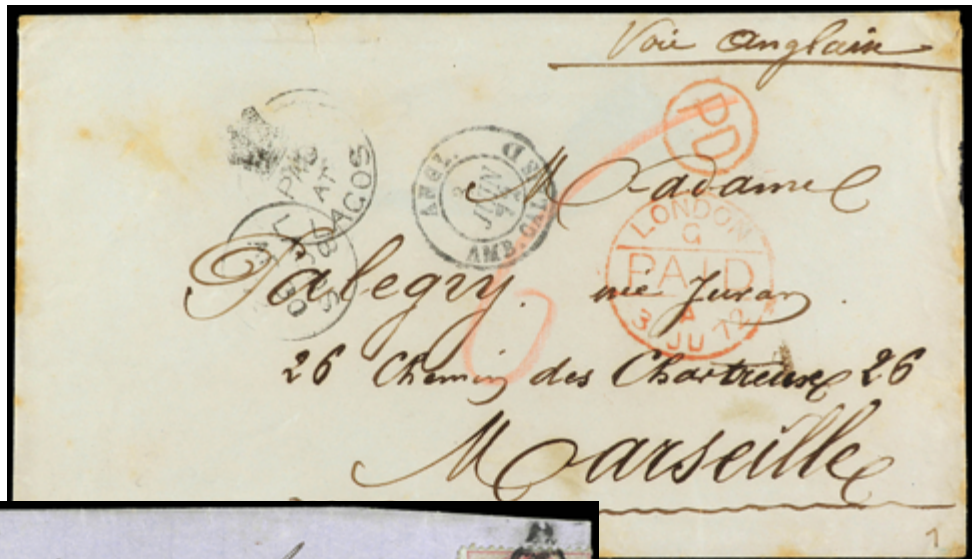 Voie Anglain
PD
PAID
AT
LAGOS
ANGL.
3
JUIN
72
AMB. CALAIS D
Madame
LONDON
G
PAID
A
3 JU 72
Palegry. née Juran
26 Chemin des Chartreux 26
Marseille
6
1